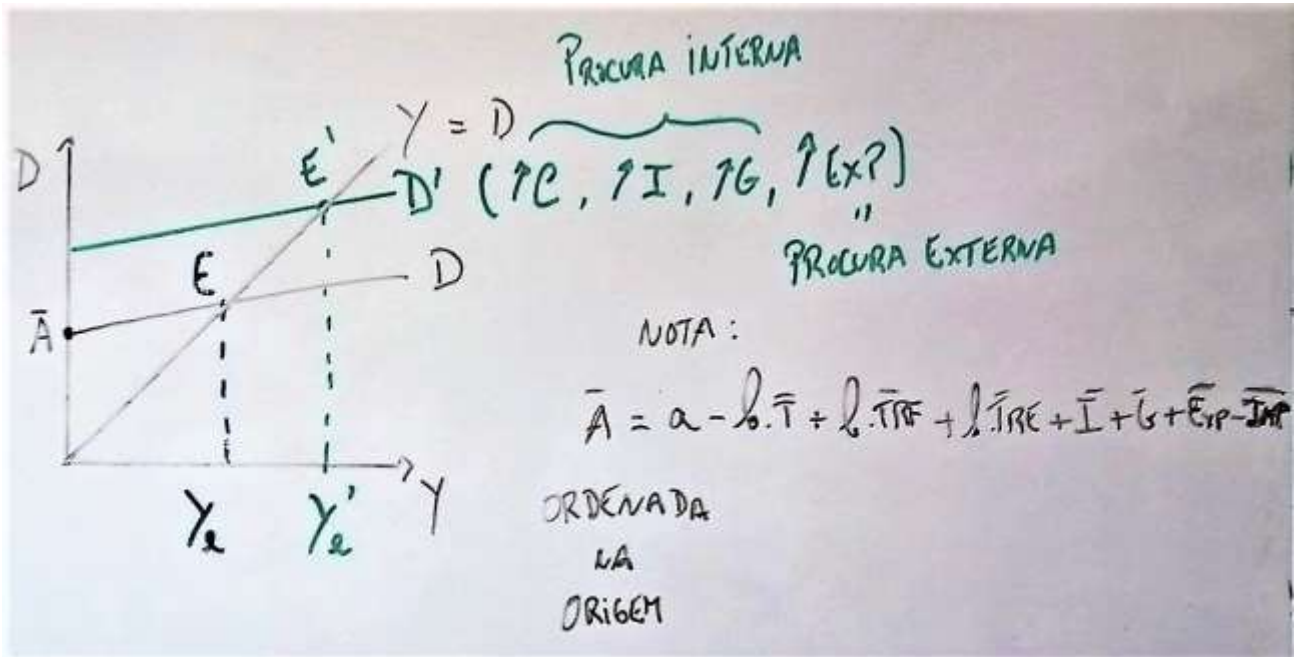 PROCURA INTERNA
Y = D
D
E'
D' (↑C, ↑I, ↑G, ↑Ex?)
"
PROCURA EXTERNA
E
D
Ā
NOTA:
Ā = a - b.T̄ + b.T̄RF + b.T̄RE + Ī + Ḡ + Ēxp - ĪMP
Ye
Ye'
Y
ORDENADA
NA
ORIGEM